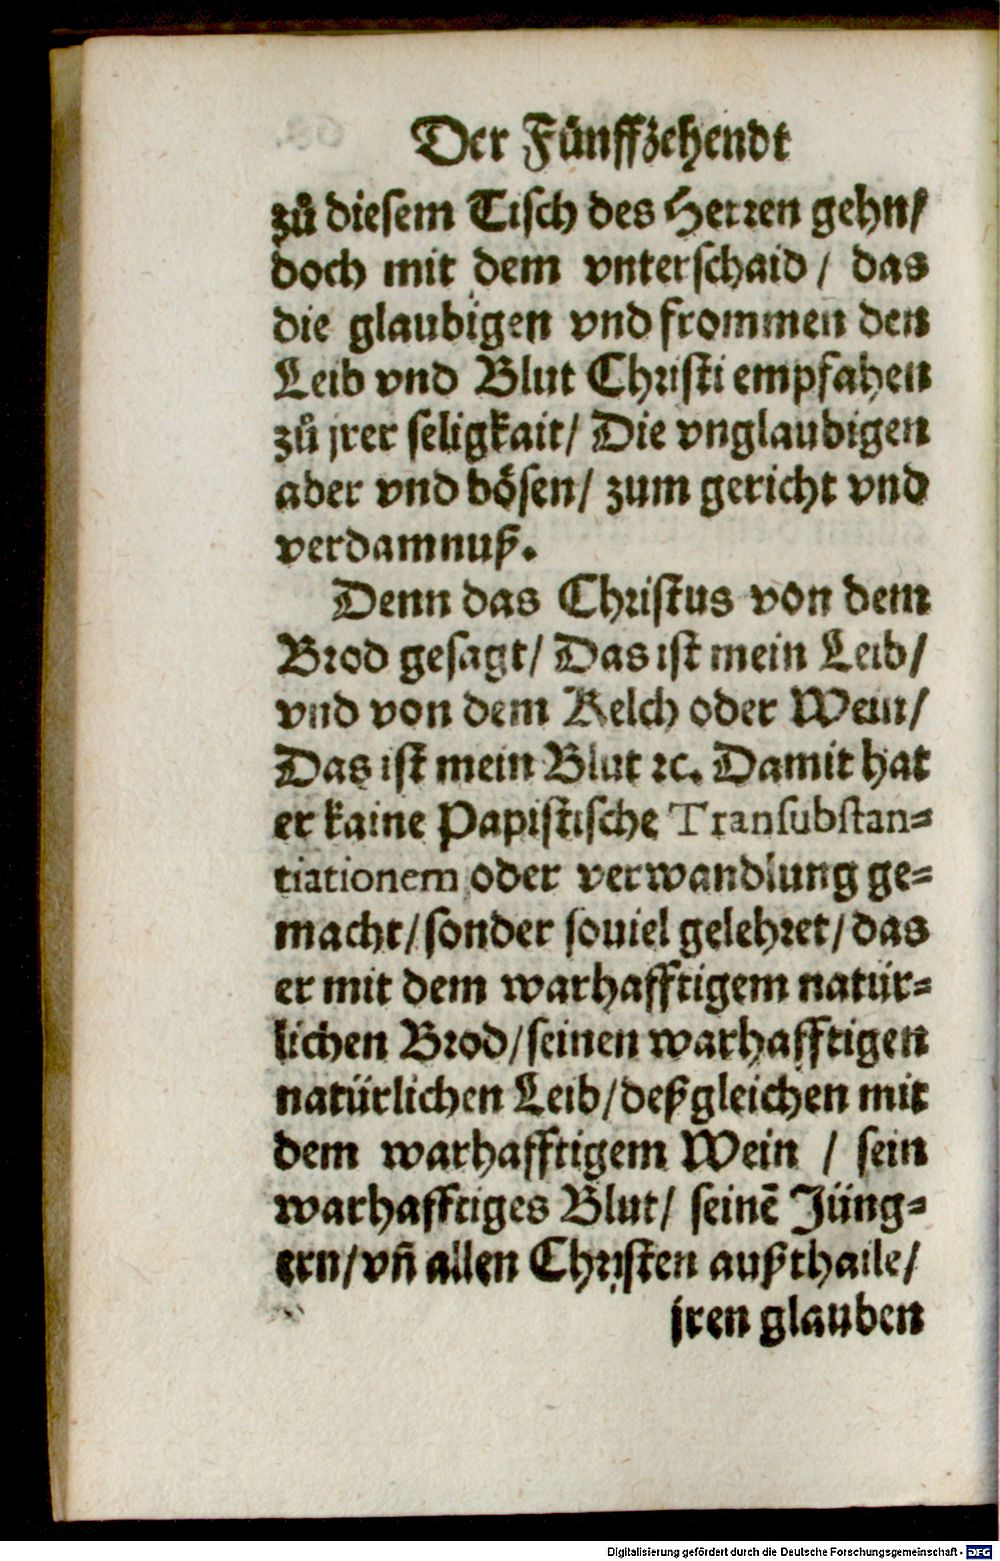 Der Fünffzehendt
zů diesem Tisch des Herren gehn/
doch mit dem vnterschaid / das
die glaubigen vnd frommen den
Leib vnd Blut Christi empfahen
zů jrer seligkait/ Die vnglaubigen
aber vnd bösen/ zum gericht vnd
verdamnuß.
Denn das Christus von dem
Brod gesagt/ Das ist mein Leib/
vnd von dem Kelch oder Wein/
Das ist mein Blut ꝛc. Damit hat
er kaine Papistische Transubstan⸗
tiationem oder verwandlung ge⸗
macht/ sonder souiel gelehret/ das
er mit dem warhafftigem natür⸗
lichen Brod/ seinen warhafftigen
natürlichen Leib/ deßgleichen mit
dem warhafftigem Wein / sein
warhafftiges Blut/ seinē Jüng⸗
ern/ vñ allen Christen außthaile/
jren glauben
Digitalisierung gefördert durch die Deutsche Forschungsgemeinschaft - DFG